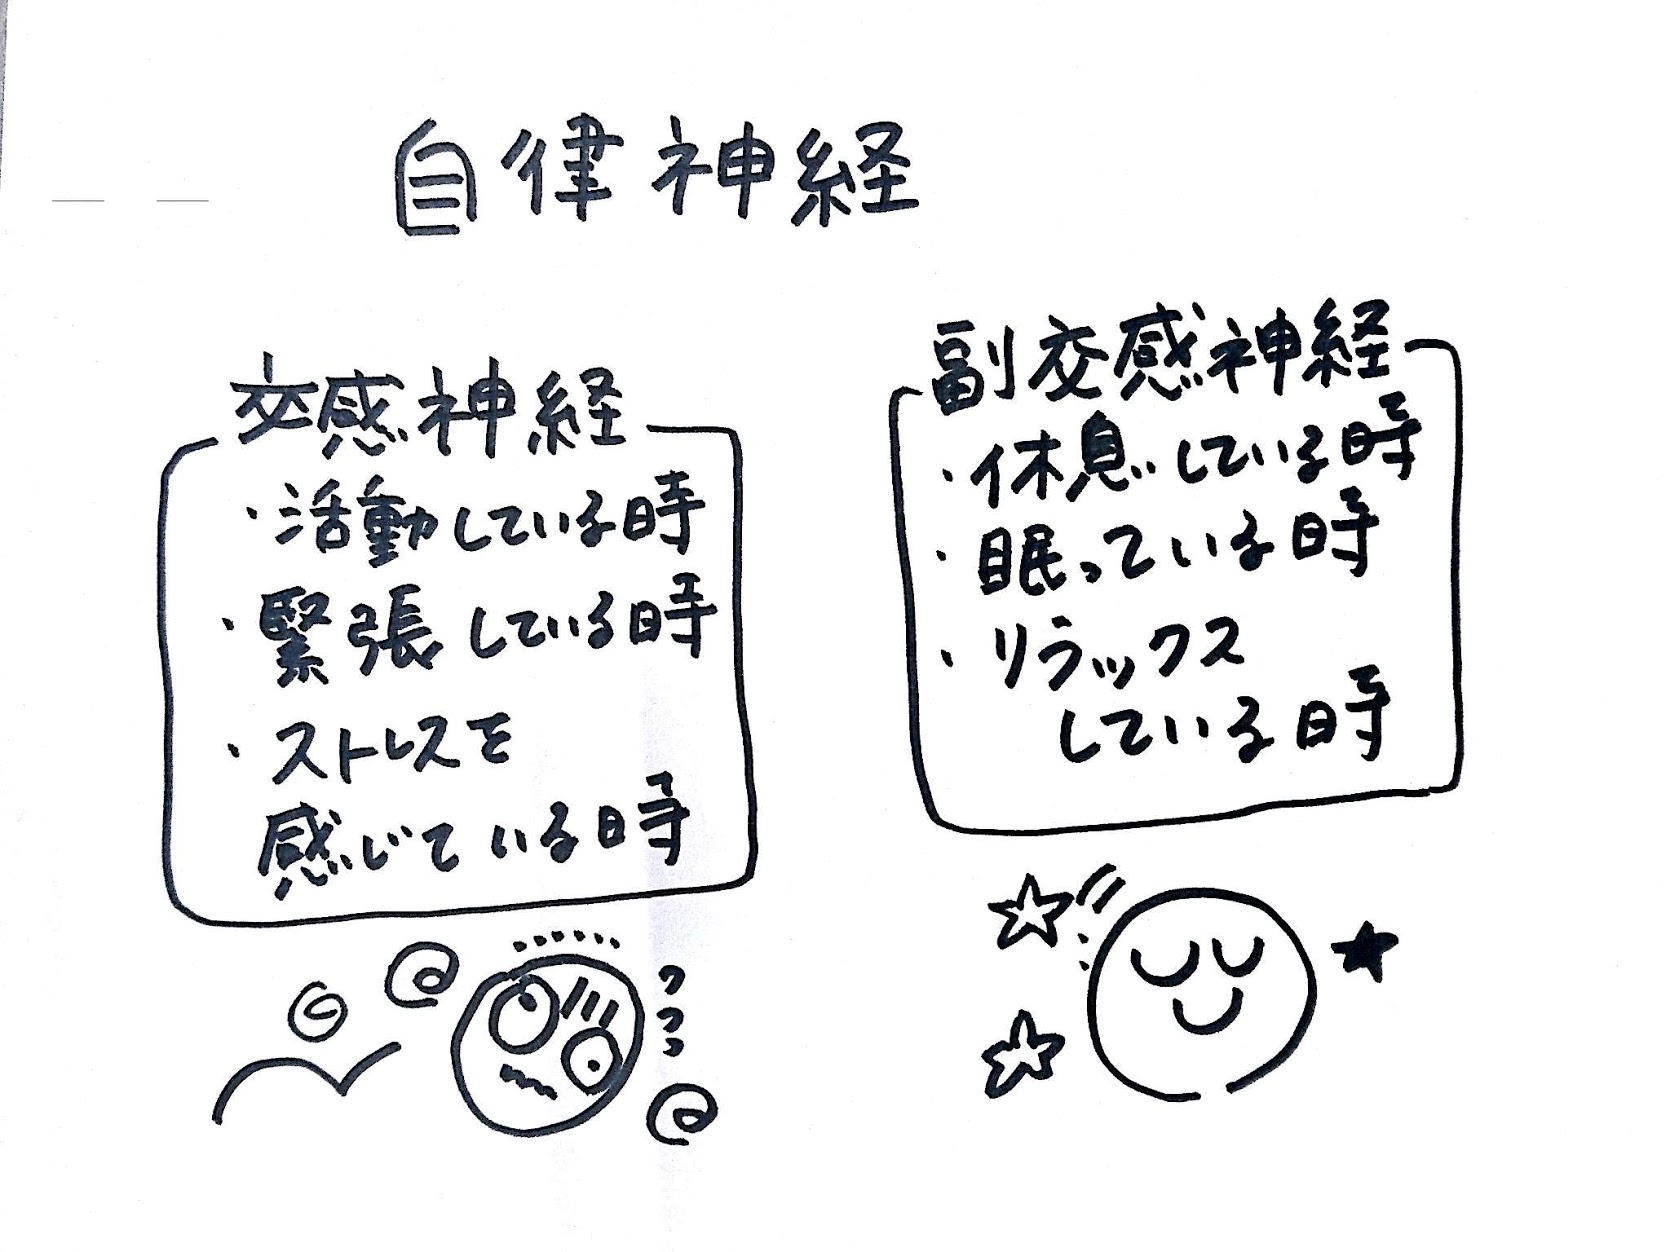 自律神経
交感神経
・活動している時
・緊張している時
・ストレスを
感じている時
副交感神経
・休息している時
・眠っている時
・リラックス
している時